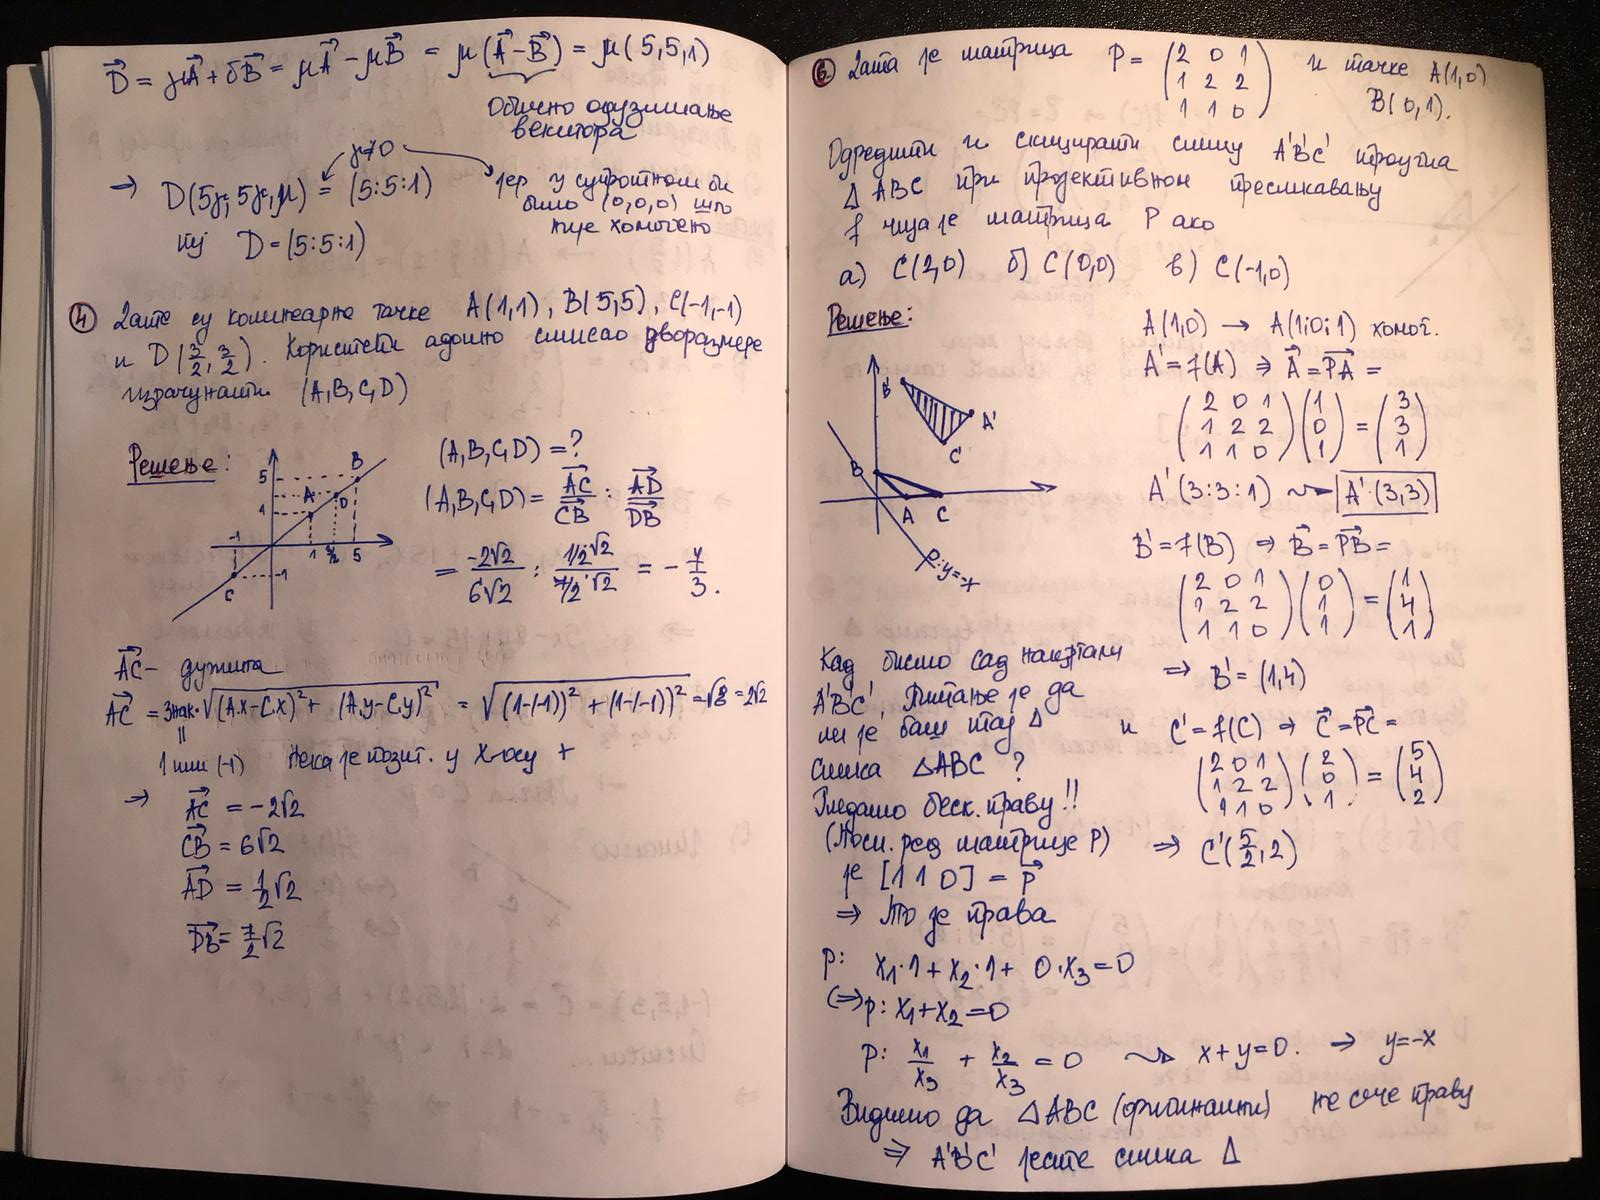 D⃗ = μA⃗ + δB⃗ = μA⃗ - μB⃗ = μ(A⃗ - B⃗) = μ(5,5,1)
Обично одузимање
вектора
μ≠0
→ D(5μ, 5μ, μ) = (5:5:1)
јер у супротном би
било (0,0,0) што
није хомогено
тј D = (5:5:1)
④ Дате су колинеарне тачке A(1,1), B(5,5), C(-1,-1)
и D(3/2, 3/2). Користећи афино смисао дворазмере
израчунати (A,B,C,D)
Решење:
5 B
A D
1
-1 1 3/2 5
C -1
(A,B,C,D) = ?
(A,B,C,D) = AC⃗/CB⃗ : AD⃗/DB⃗
= -2√2/6√2 : 1/2·√2/7/2·√2 = -7/3.
AC⃗ - дужина
AC⃗ = знак·√((A.x-C.x)² + (A.y-C.y)²) = √((1-(-1))² + (1-(-1))²) = √8 = 2√2
||
1 или (-1) Нека је позит. у X-осу +
⇒ AC⃗ = -2√2
CB⃗ = 6√2
AD⃗ = 1/2√2
DB⃗ = 7/2√2
⑥ Дата је матрица P = (2 0 1
1 2 2
1 1 0) и тачке A(1,0)
B(0,1).
Одредити и скицирати слику A'B'C' троугла
Δ ABC при пројективном пресликавању
f чија је матрица P ако
а) C(2,0) б) C(0,0) в) C(-1,0)
Решење:
B' A'
C'
B
A C
p: y=-x
A(1,0) → A(1:0:1) хомог.
A' = f(A) ⇒ A⃗ = PA⃗ =
(2 0 1
1 2 2
1 1 0) (1
0
1) = (3
3
1)
A'(3:3:1) ⇝ A'(3,3)
B' = f(B) ⇒ B⃗ = PB⃗ =
(2 0 1
1 2 2
1 1 0) (0
1
1) = (1
4
1)
⇒ B' = (1,4)
и C' = f(C) ⇒ C⃗ = PC⃗ =
(2 0 1
1 2 2
1 1 0) (2
0
1) = (5
4
2)
⇒ C'(5/2, 2)
Кад бисмо сад нацртали
A'B'C', Питање је да
ли је баш тај Δ
слика ΔABC ?
Гледамо беск. праву!!
(Посл. ред матрице P)
је [1 1 0] = p⃗
⇒ То је права
p: x₁·1 + x₂·1 + 0·x₃ = 0
(⇒) p: x₁ + x₂ = 0
p: x₁/x₃ + x₂/x₃ = 0 ⇝ x+y=0. → y=-x
Видимо да ΔABC (оригинални) не сече праву
⇒ A'B'C' јесте слика Δ